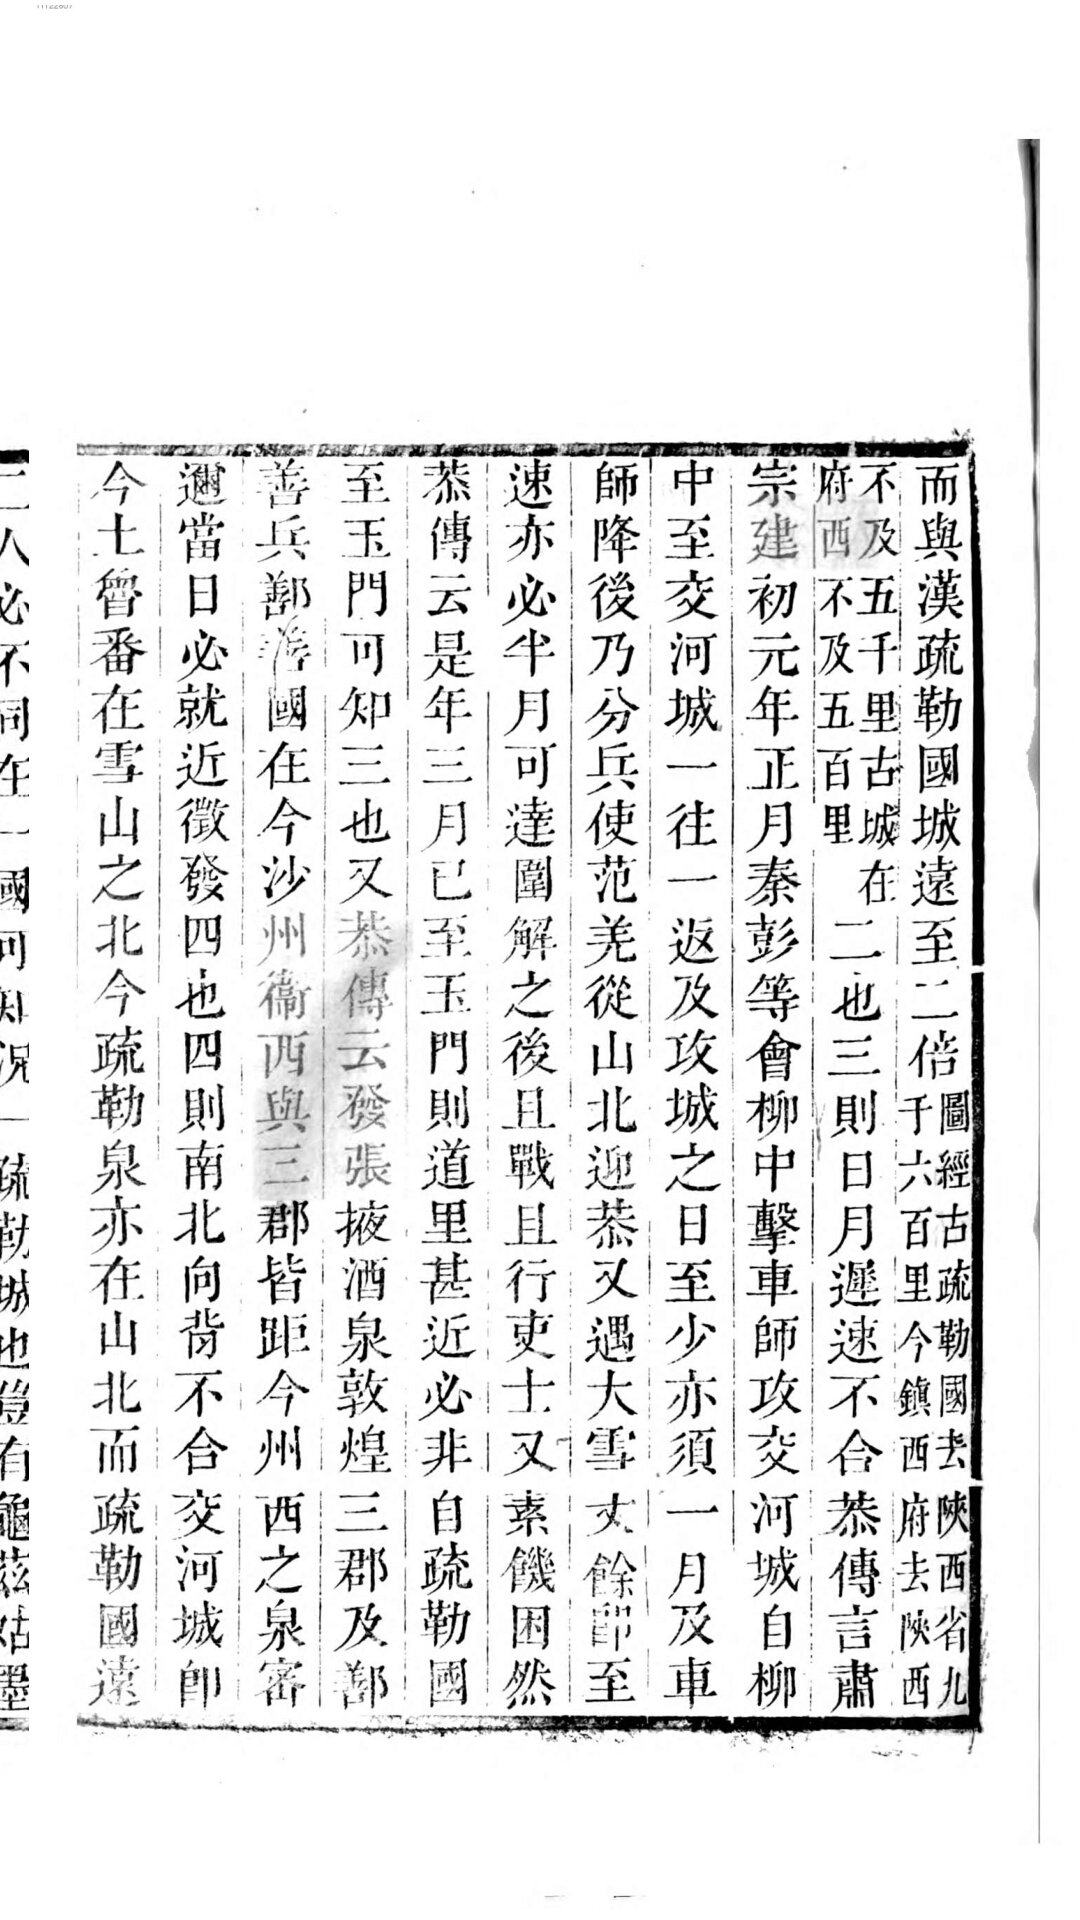 而與漢疏勒國城遠至二倍圖經古疏勒國去陝西省九千六百里今鎮西府去陝西
不及五千里古城在府西不及五百里二也三則日月遲速不合恭傳言肅
宗建初元年正月秦彭等會柳中擊車師攻交河城自柳
中至交河城一往一返及攻城之日至少亦須一月及車
師降後乃分兵使范羌從山北迎恭又遇大雪丈餘卽至
速亦必半月可達圍解之後且戰且行吏士又素饑困然
恭傳云是年三月已至玉門則道里甚近必非自疏勒國
至玉門可知三也又恭傳云發張掖酒泉敦煌三郡及鄯
善兵鄯善國在今沙州衞西與三郡皆距今州西之泉審
邇當日必就近徵發四也四則南北向背不合交河城卽
今土魯番在雪山之北今疏勒泉亦在山北而疏勒國遠
二人必不同在一國可知況一疏勒城也豈有龜茲姑墨